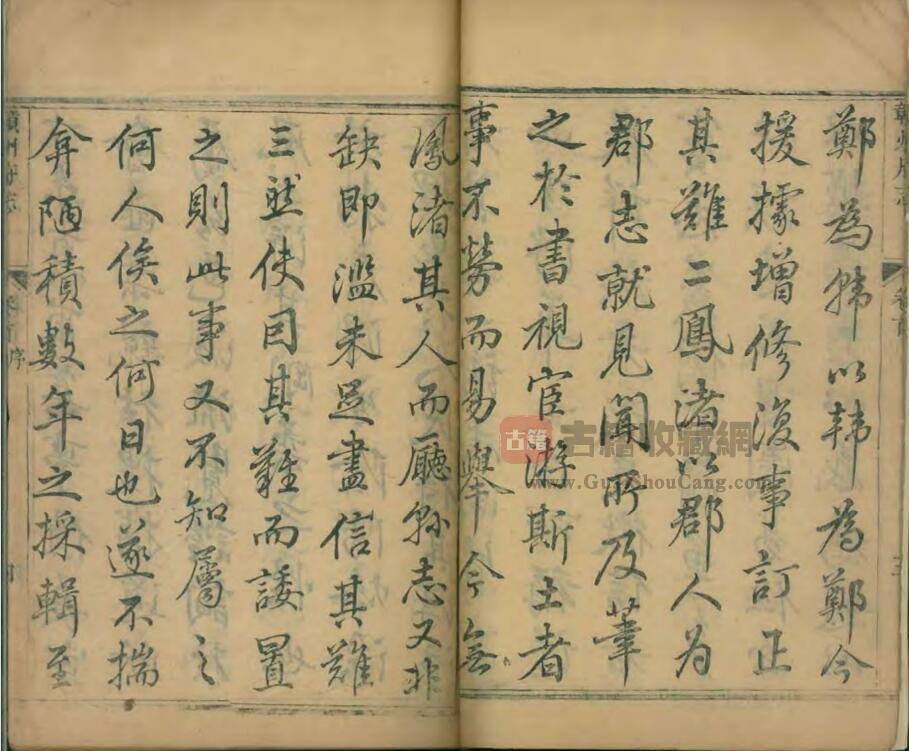 州府志 卷首
鄭為韓以韓為鄭今
援據增修復事訂正
其難二鳳渚以郡人為
郡志就見聞所及筆
之於書視宦游斯土者
事不勞而易舉今無
鳳渚其人而廳縣志又非
缺即濫未足盡信其難
三然使因其難而諉置
之則此事又不知屬之
何人俟之何日也遂不揣
弇陋積數年之採輯至
州府志 卷首 序
古籍 古籍收藏網
www.GuJiShouCang.com